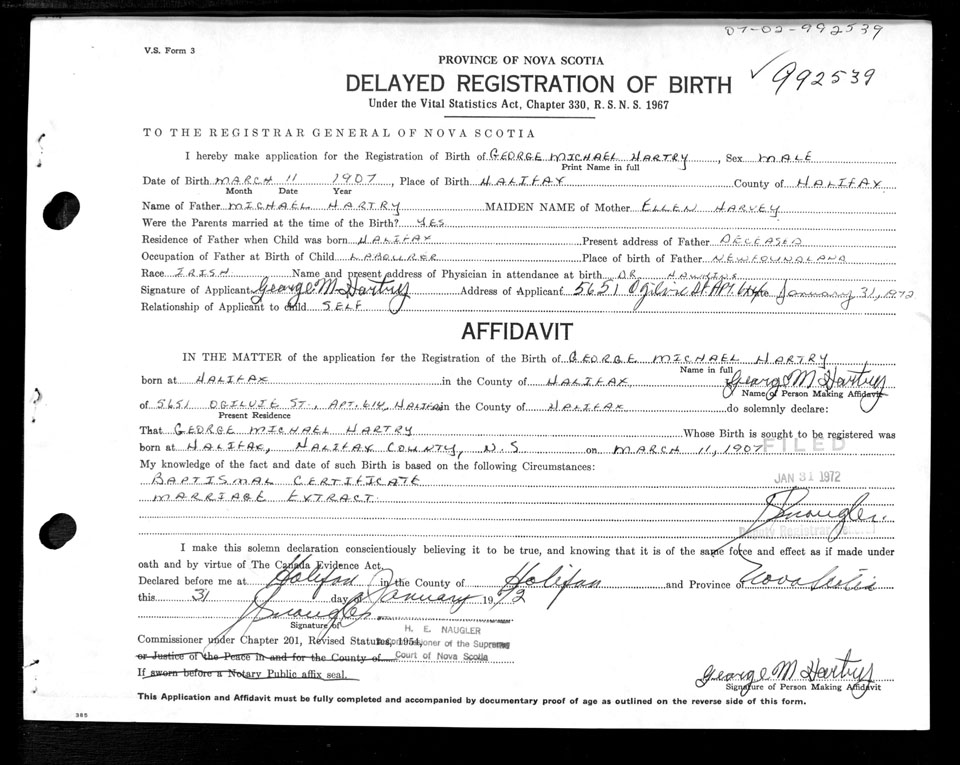 07-02-992539
V.S. Form 3
PROVINCE OF NOVA SCOTIA
DELAYED REGISTRATION OF BIRTH
✓992539
Under the Vital Statistics Act, Chapter 330, R.S.N.S. 1967
TO THE REGISTRAR GENERAL OF NOVA SCOTIA
I hereby make application for the Registration of Birth of GEORGE MICHAEL HARTRY, Sex MALE
Print Name in full
Date of Birth MARCH 11 1907, Place of Birth HALIFAX County of HALIFAX
Month Date Year
Name of Father MICHAEL HARTRY MAIDEN NAME of Mother ELLEN HARVEY
Were the Parents married at the time of the Birth? YES
Residence of Father when Child was born HALIFAX Present address of Father DECEASED
Occupation of Father at Birth of Child LABOURER Place of birth of Father NEWFOUNDLAND
Race IRISH Name and present address of Physician in attendance at birth DR. HAWKINS
Signature of Applicant George M Hartry Address of Applicant 5651 Ogilvie St Apt. 614 January 31, 1972
Relationship of Applicant to child SELF
AFFIDAVIT
IN THE MATTER of the application for the Registration of the Birth of GEORGE MICHAEL HARTRY
Name in full
born at HALIFAX in the County of HALIFAX, George M Hartry
Name of Person Making Affidavit
of 5651 OGILVIE ST., APT. 614, HALIFAX in the County of HALIFAX do solemnly declare:
Present Residence
That GEORGE MICHAEL HARTRY Whose Birth is sought to be registered was
born at HALIFAX, HALIFAX COUNTY, N.S on MARCH 11, 1907
FILED
My knowledge of the fact and date of such Birth is based on the following Circumstances:
JAN 31 1972
BAPTISMAL CERTIFICATE
MARRIAGE EXTRACT
Naugler
Deputy Registrar
I make this solemn declaration conscientiously believing it to be true, and knowing that it is of the same force and effect as if made under
oath and by virtue of The Canada Evidence Act.
Declared before me at Halifax in the County of Halifax and Province of Nova Scotia
this 31 day of January 1972
Naugler
Signature of
H. E. NAUGLER
Commissioner under Chapter 201, Revised Statutes, 1954, Commissioner of the Supreme
or Justice of the Peace in and for the County of Court of Nova Scotia
If sworn before a Notary Public affix seal.
George M Hartry
Signature of Person Making Affidavit
This Application and Affidavit must be fully completed and accompanied by documentary proof of age as outlined on the reverse side of this form.
385